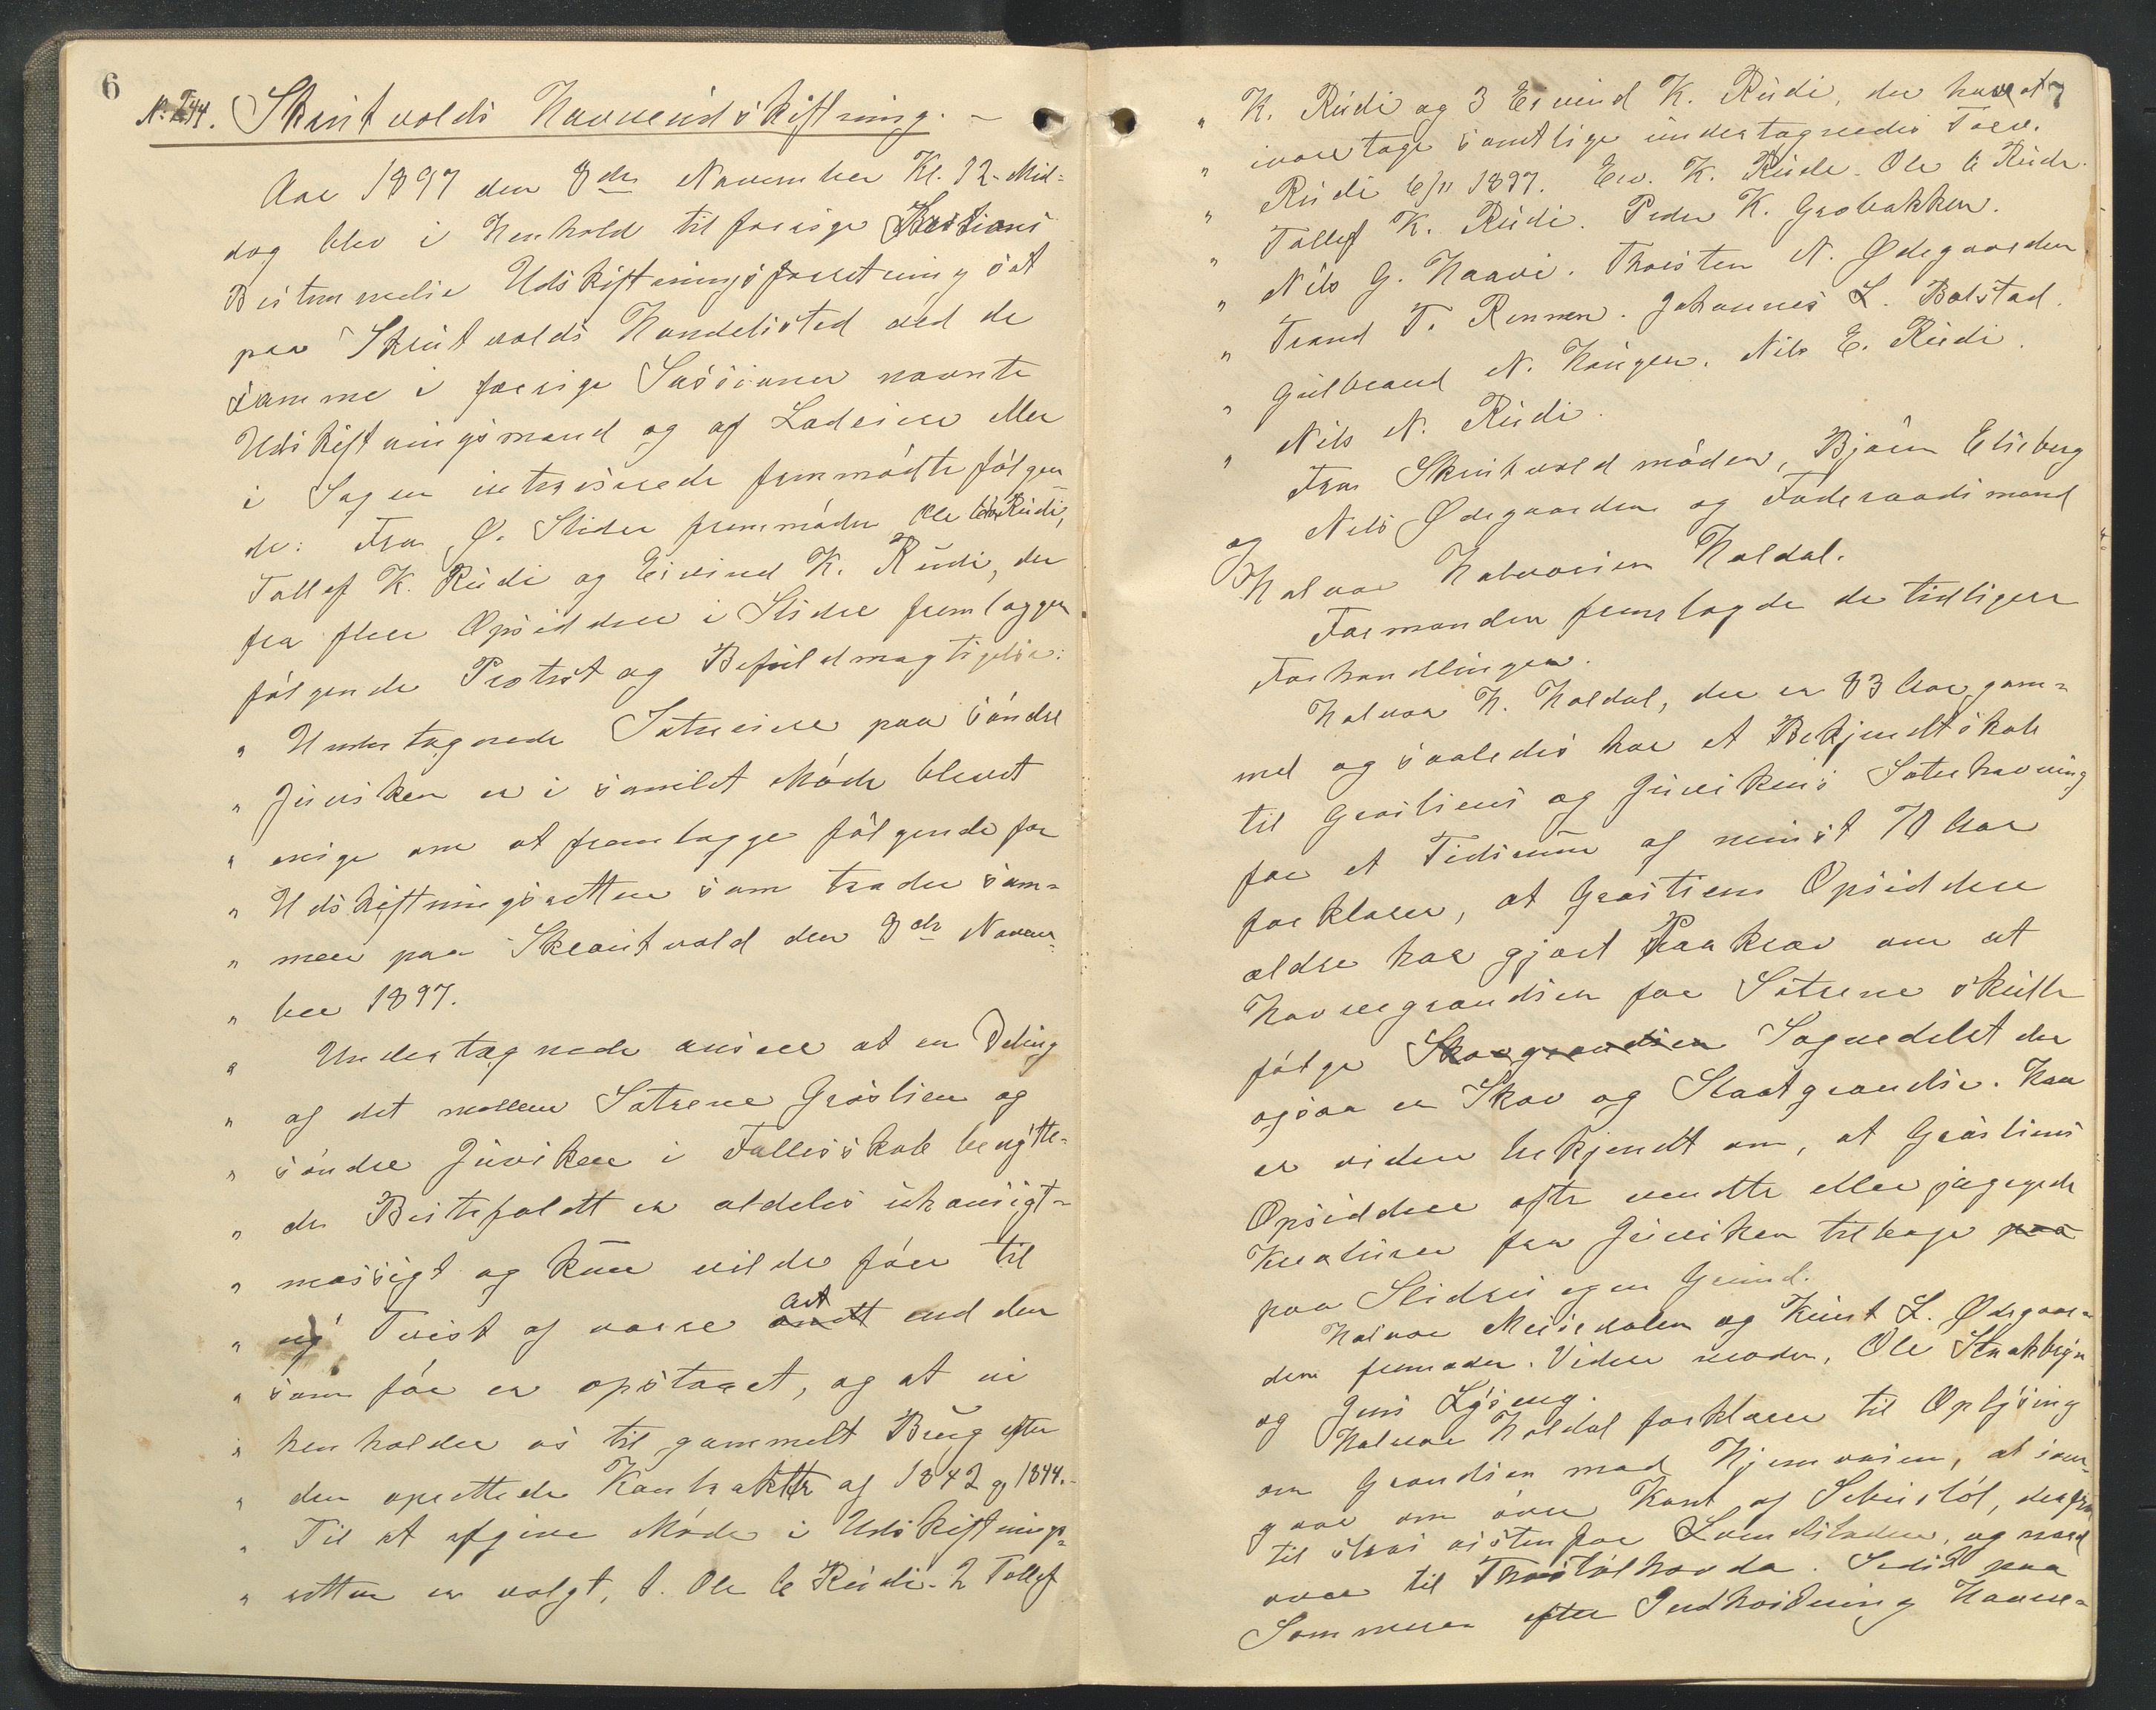 6
No. 244. Skrutvolds Havneudskiftning. —
Aar 1897 den 8de November Kl. 12 Mid-
dag blev i Henhold til forrige Sestions
Bestemmelse Udskiftningsforretning sat
paa Skrutvolds Handelssted ved de
samme i forrige Sessioner nævnte
Udskiftningsmænd og af Lodeiere eller
i Sagen interesserede fremmødte følgen-
de: Fra Ø. Slidre fremmøder Ole E. Rudi,
Tollef K. Rudi og Eivind K. Rudi, der
fra flere Opsiddere i Slidre fremlægger
følgende Protest og Befuldmægtigelse:
" Undertegnede Sætereiere paa søndre
" Juviken er i samlet Møde blevet
" enige om at fremlægge følgende for
" Udskiftningsretten som træder sam-
" men paa Skrautvold den 8de Novem-
" ber 1897.
" Undertegnede anser at en Deling
" af det mellem Sætrene Grøslien og
" søndre Juviken i Fællesskab benytte-
" de Beitefeldt er aldeles uhensigt-
" mæssigt og kun vilde føre til
" ny Tvist af værre art end den
" som før er opstaaet, og at vi
" henholder os til gammelt Brug efter
" den oprettede Kontrakter af 1842 og 1844.
" Til at afgive Møde i Udskiftnings-
" retten er valgt, 1. Ole E Rudi. 2 Tollef
7
" K. Rudi og 3 Eivind K. Rudi, der har at
" ivaretage samtlige undertegnedes Tarv.
" Rudi 6/11 1897. Eiv. K. Rudi. Ole E Rudi.
" Tollef K. Rudi. Peder K. Grobakken.
" Nils G. Haavi. Thorsten N. Ødegaarden
" Trand T. Rennen. Johannes L. Bolstad.
" Gulbrand N. Haugen. Nils E. Rudi.
" Nils N. Rudi.
Fra Skrutvold møder, Bjørn Elseberg
og Nils Ødegaarden og Føderaadsmand
Halvor Halvorsen Holdal.
Formanden fremlagde de tidligere
Forhandlinger.
Halvor H. Holdal, der er 83 Aar gam-
mel og saaledes har et Bekjendtskab
til Grøsliens og Juvikens Sæterhavning
for et Tidsrum af minst 70 Aar
forklarer, at Grøsliens Opsiddere
ældre har gjort Paakrav om at
Havnegrændsen for Sætrene skulle
følge Skovgrændsen Sognedelet der
ogsaa er Skov og Slaatgrændse. Han
er viden bekjendt om, at Grøsliens
Opsiddere ofte vendte eller jagede
Kreaturer fra Juviken tilbage paa
paa Slidres egen Grund.
Halvor Meisdalen og Knut L. Ødegaar-
den fremmøder. Videre møder, Ole Strakbryn
og Jens Lyseng.
Halvor Holdal forklarer til Oplysning
om Grændsen mod Hjemvasen, at den
gaar om øvre Kant af Sebustøl, derfra
til strøs østenfor Lomtstaden, og nord
over til Thostølhovda. Sidst paa
Sommeren efter Indhøstning Havne-